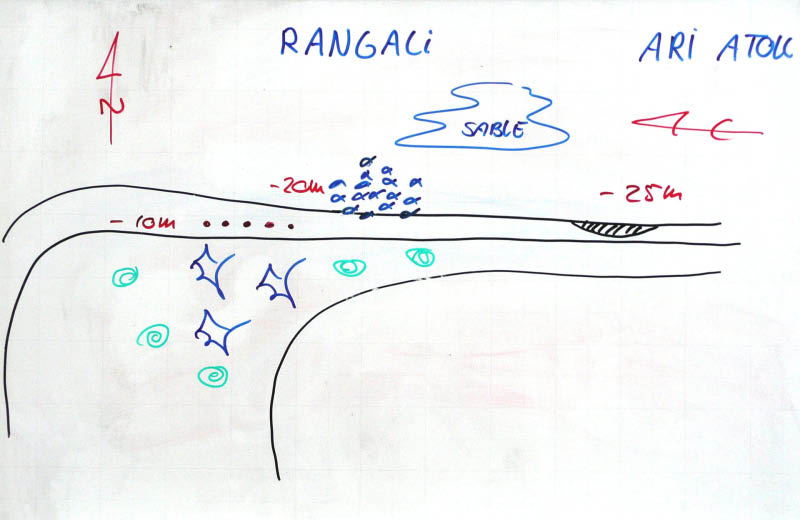 RANGALi
ARi ATOLL
N
SABLE
C
-20m
-25m
-10m